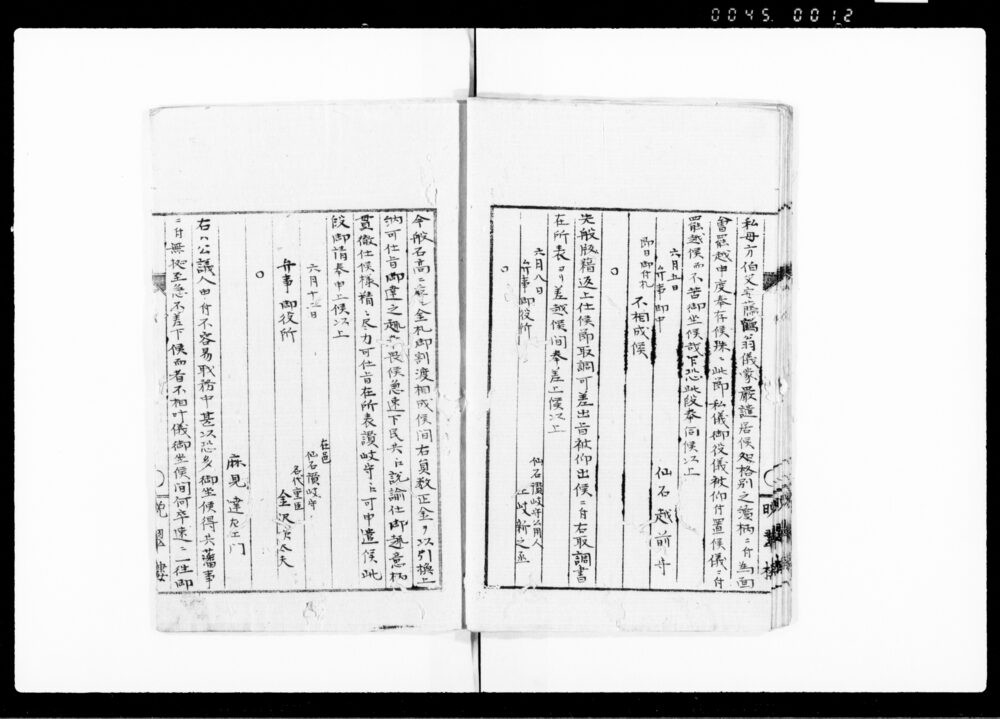 0045 0012
私母方伯父斎藤鶴翁儀蒙厳譴居候処格別之
曾罷越申度奉存候殊ニ此節私儀御役儀被仰付置候儀ニ付
罷越候而不苦御坐候哉乍恐此段奉伺候以上
六月五日
仙石越前守
弁事御中
即日御付札
不相成候
先般版籍返上仕候節取調可差出旨被仰出候ニ付右取調書
在所表ヨリ差越候間奉差上候以上
六月八日
仙石讃岐守公用人
土岐新之丞
弁事御役所
今般石高ニ応シ金札御割渡相成候間右員数正金ヲ以引換上
納可仕旨御達之趣奉畏候急速下民共江説諭仕御趣意
貫徹仕候様精々尽力可仕旨在所表讃岐守江可申遣候此
段御請奉申上候以上
六月十二日
在邑
仙石讃岐守
名代重臣
金沢
弁事御役所
麻見達左エ門
右ハ公議人申付不容易取務中甚以恐多御坐候得共藩事
ニ付無拠至急不差下候而者不相叶儀御坐候間何卒速ニ一往御